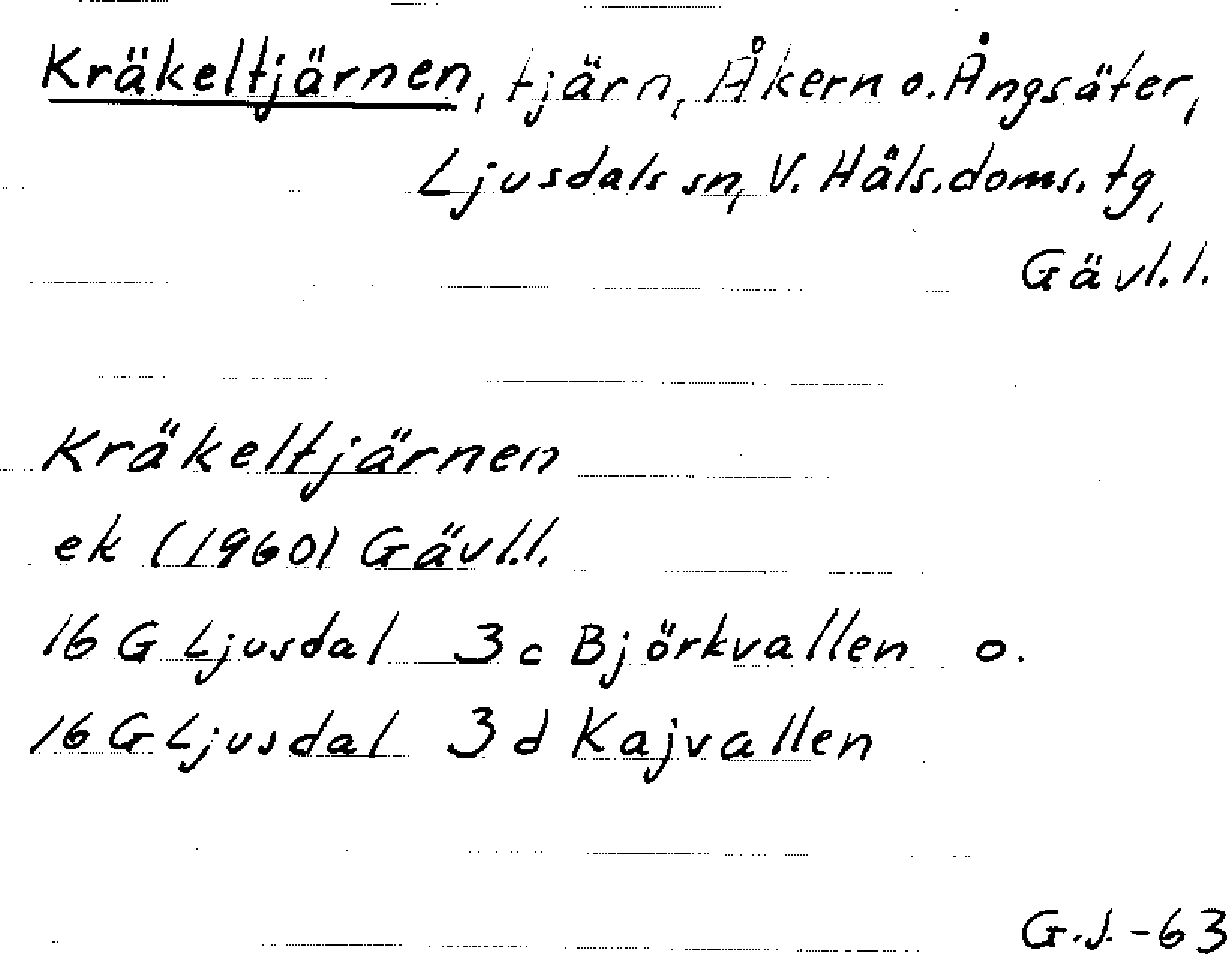 Kräkeltjärnen, tjärn, Åkern o. Ångsäter,
Ljusdals sn, V. Häls. doms. tg,
Gävl. l.
Kräkeltjärnen
ek (1960) Gävl.l.
16 G Ljusdal 3c Björkvallen o.
16 G Ljusdal 3d Kajvallen
G.J.-63